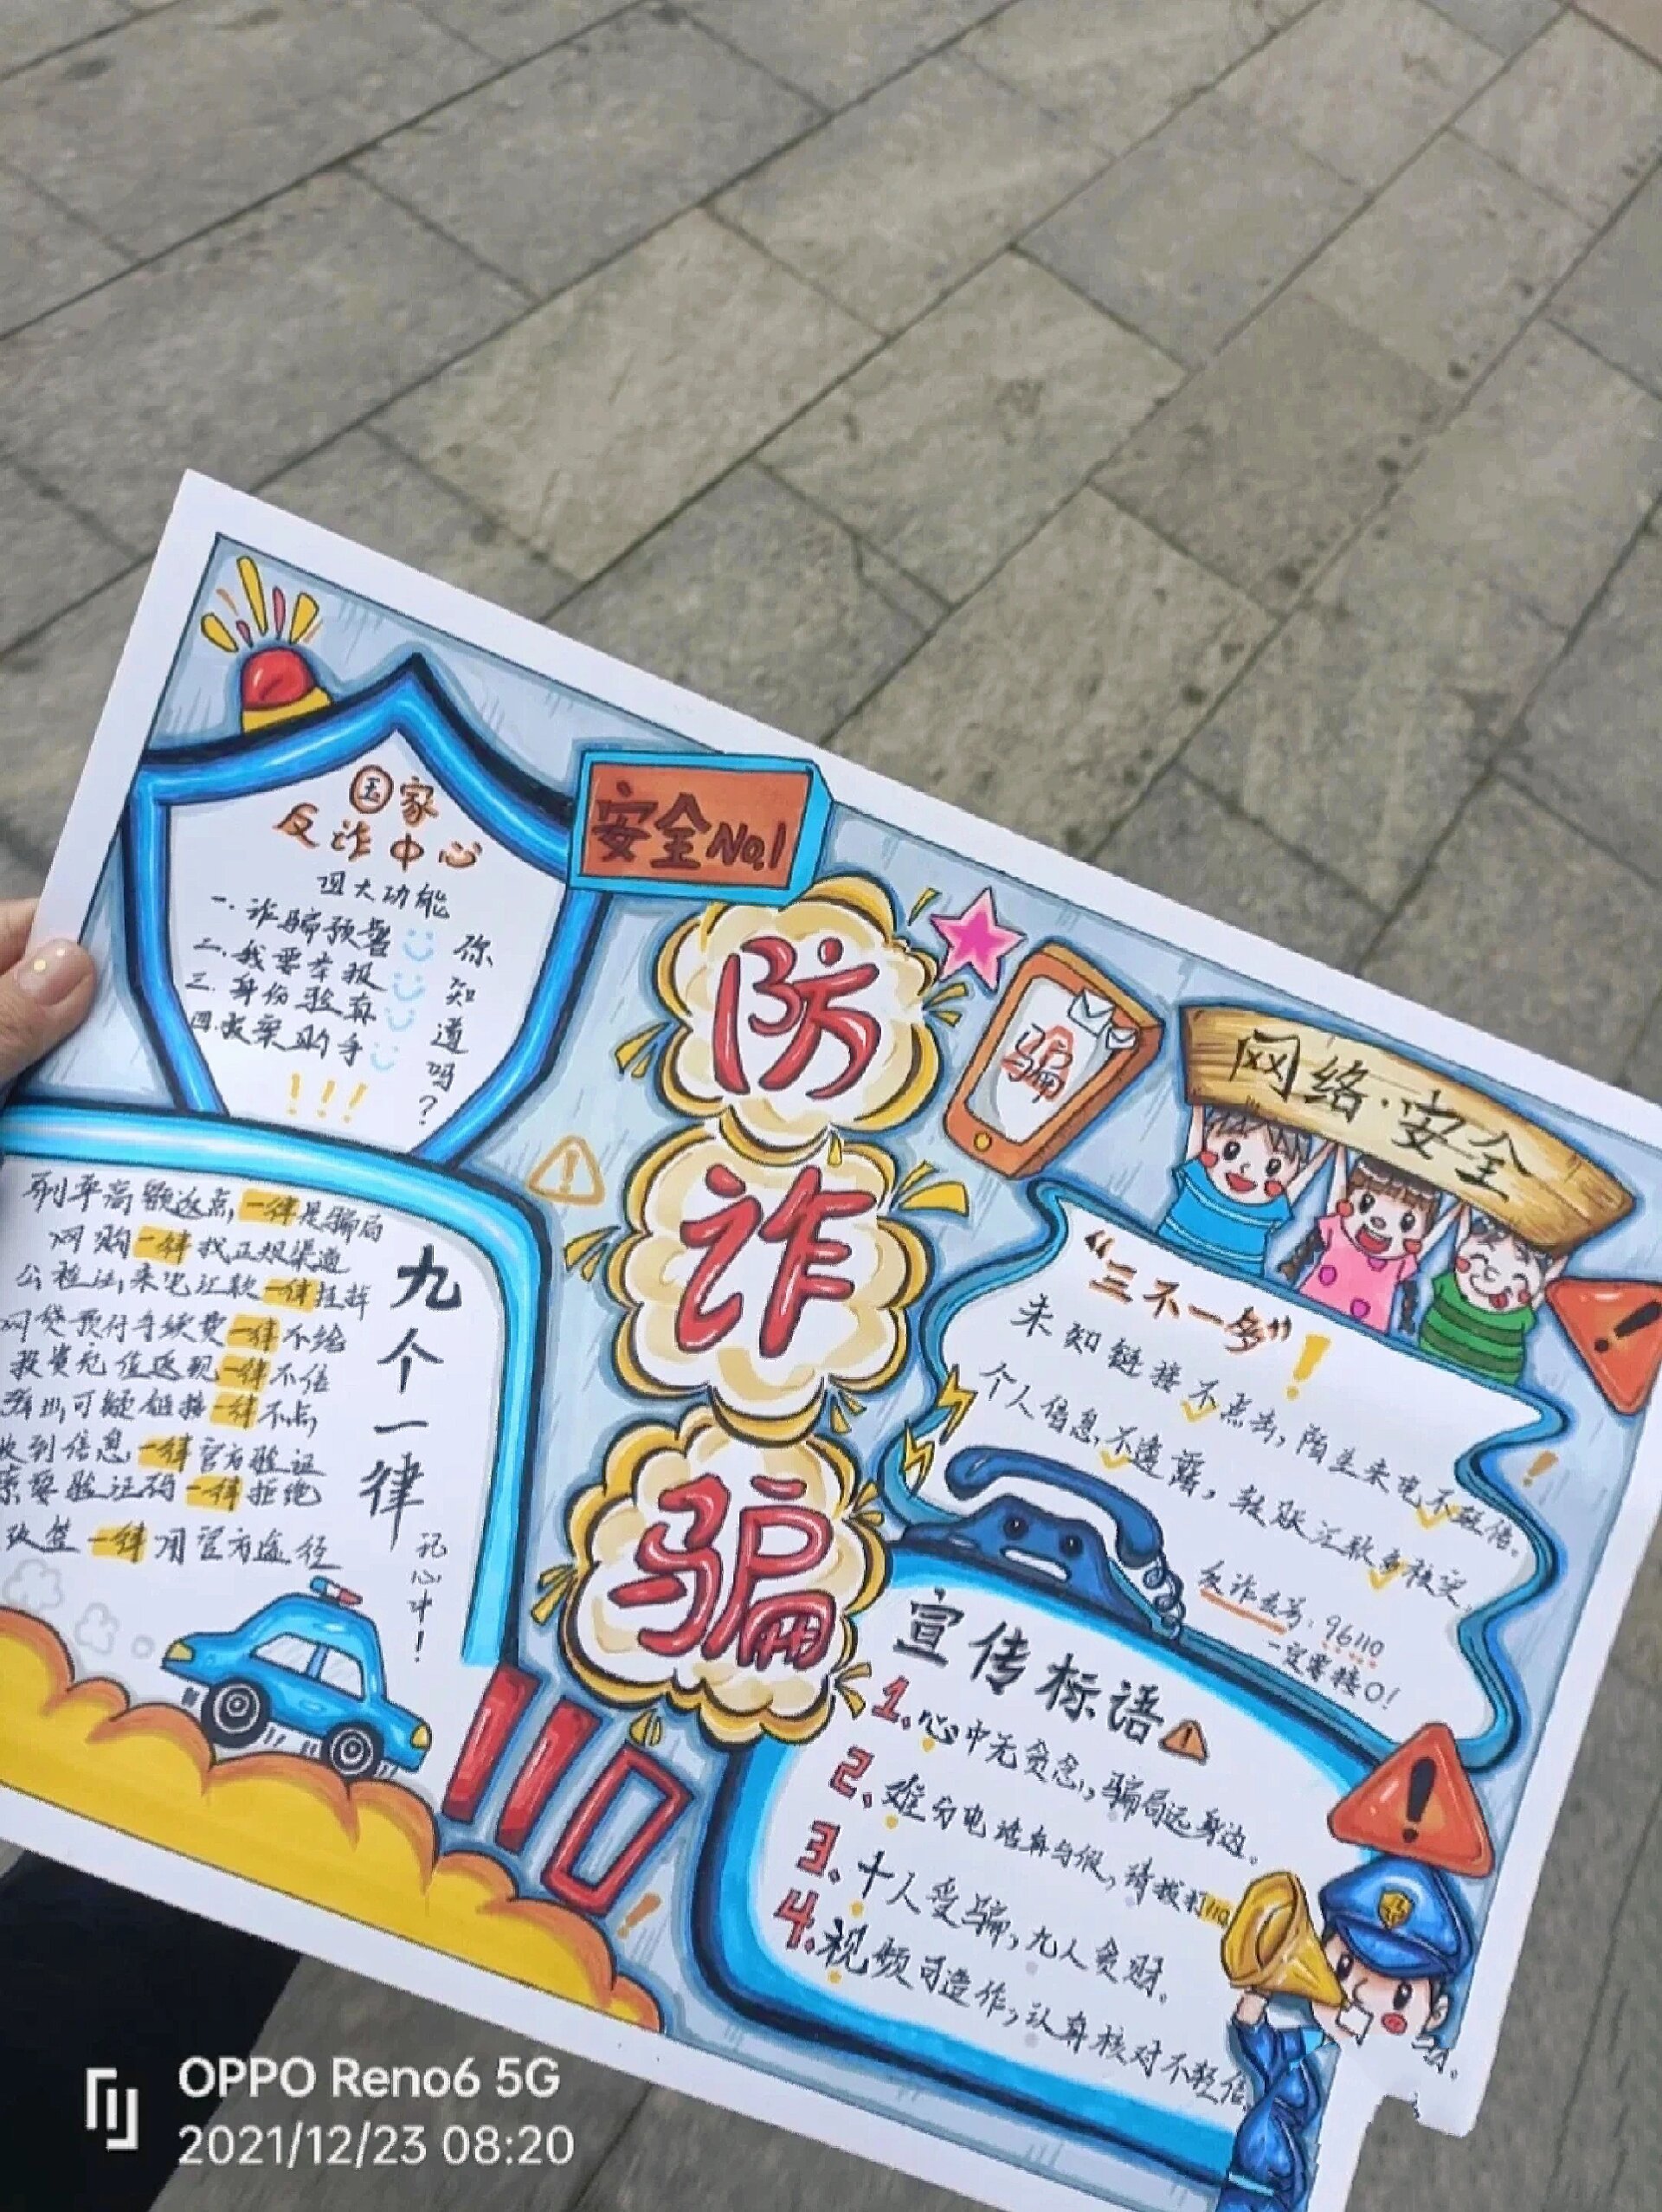 国家
反诈中心
四大功能
一.诈骗预警
二.我要举报
三.身份验真
四.报案助手
!!!
你知道吗?
安全No.1
防诈骗
骗
网络·安全
九个一律
记心中!
刷单高额返点,一律是骗局
网购一律找正规渠道
公检法来电汇款一律挂掉
网贷预付手续费一律不给
投资充值返现一律不信
可疑链接一律不点
收到信息一律官方验证
索要验证码一律拒绝
一律用官方途径
110
“三不一多”!
未知链接不点击,陌生来电不轻信。
个人信息不透露,转账汇款多核实。
反诈专号:96110
一定要接O!
宣传标语
1.心中无贪念,骗局远身边。
2.难分电话真与假,请拨打110
3.十人受骗,九人贪财。
4.视频可造作,认真核对不轻信
OPPO Reno6 5G
2021/12/23 08:20